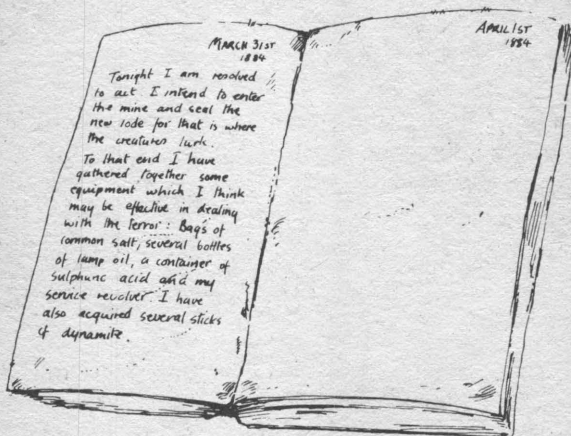 MARCH 31ST
1884
Tonight I am resolved
to act. I intend to enter
the mine and seal the
new lode for that is where
the creatures lurk.
To that end I have
gathered together some
equipment which I think
may be effective in dealing
with the terror: Bags of
common salt, several bottles
of lamp oil, a container of
sulphuric acid and my
service revolver. I have
also acquired several sticks
of dynamite.
APRIL 1ST
1884